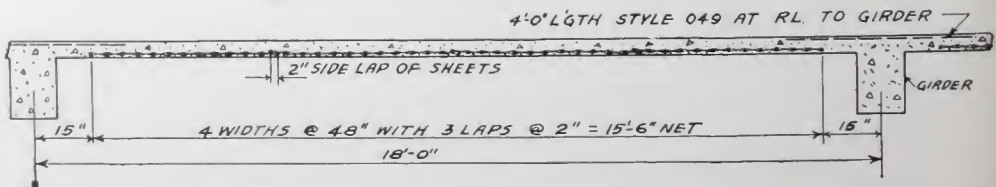 4'-0" L'GTH STYLE 049 AT RL. TO GIRDER
2" SIDE LAP OF SHEETS
GIRDER
15" 4 WIDTHS @ 48" WITH 3 LAPS @ 2" = 15'-6" NET 15"
18'-0"